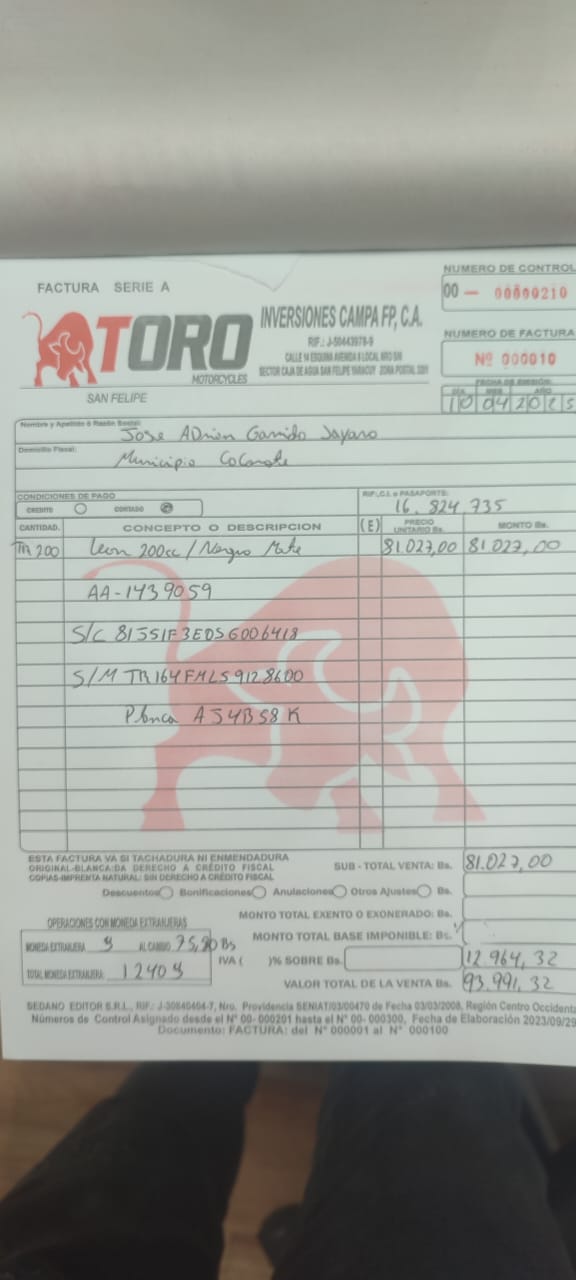 FACTURA SERIE A
NUMERO DE CONTROL
00 — 00000210
TORO
MOTORCYCLES
SAN FELIPE
INVERSIONES CAMPA FP, C.A.
RIF.: J-50443978-9
CALLE 14 ESQUINA AVENIDA 8 LOCAL NRO S/N
SECTOR CAJA DE AGUA SAN FELIPE YARACUY ZONA POSTAL 3201
NUMERO DE FACTURA
Nº 000010
FECHA DE EMISIÓN:
DIA MES AÑO
10 04 2025
Nombre y Apellido ó Razón Social:
Jose ADrian Garrido
Domicilio Fiscal:
Municipio
CONDICIONES DE PAGO
CREDITO CONTADO
RIF:,C.I. o PASAPORTE:
16.824.735
CANTIDAD. CONCEPTO O DESCRIPCION (E) PRECIO UNITARIO Bs. MONTO Bs.
TR200 Leon 200cc / Negro Mate 81.027,00 81.027,00
AA-1439059
S/C
S/M TR164FML59128600
Placa AJ4B58K
ESTA FACTURA VA SI TACHADURA NI ENMENDADURA
ORIGINAL-BLANCA:DA DERECHO A CRÉDITO FISCAL
COPIAS-IMPRENTA NATURAL: SIN DERECHO A CRÉDITO FISCAL
SUB - TOTAL VENTA: Bs. 81.027,00
Descuentos Bonificaciones Anulaciones Otros Ajustes Bs.
MONTO TOTAL EXENTO O EXONERADO: Bs.
OPERACIONES CON MONEDA EXTRANJERAS
MONTO TOTAL BASE IMPONIBLE: Bs.
MONEDA EXTRANJERA $ AL CAMBIO Bs
IVA ( )% SOBRE Bs. 12.964,32
TOTAL MONEDA EXTRANJERA: 1240$
VALOR TOTAL DE LA VENTA Bs. 93.991,32
SEDANO EDITOR S.R.L., RIF.: J-30840404-7, Nro. Providencia SENIAT/03/00470 de Fecha 03/03/2008, Región Centro Occidenta
Números de Control Asignado desde el Nº 00- 000201 hasta el Nº 00- 000300, Fecha de Elaboración 2023/09/29
Documento: FACTURA: del Nº 000001 al Nº 000100